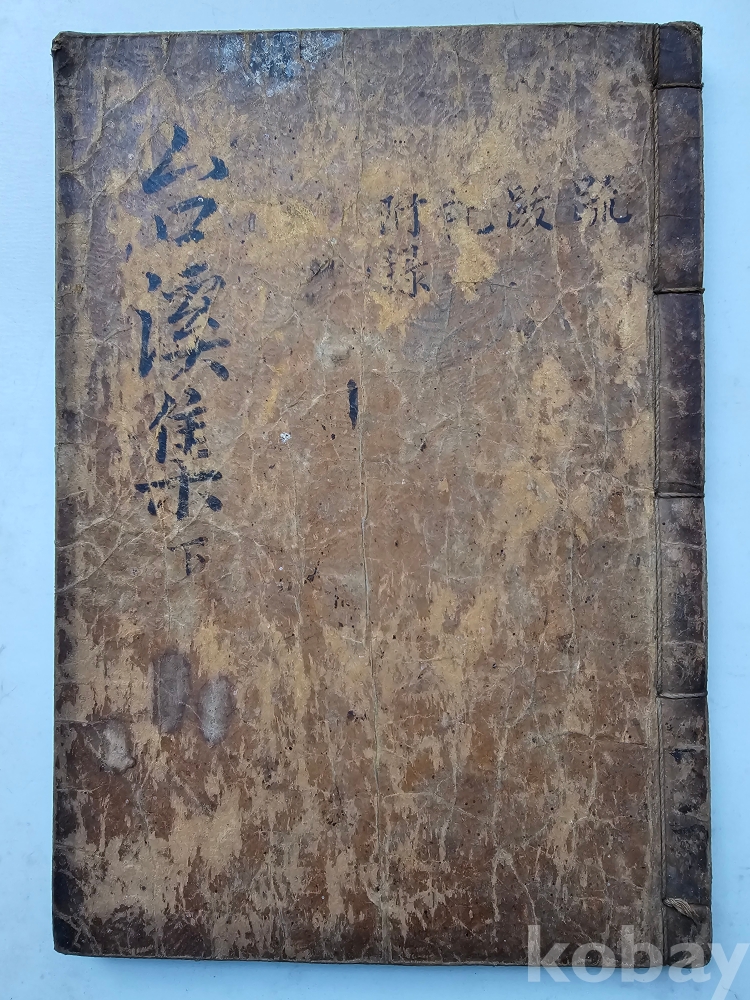 台溪集下
疏
跋
記
附錄
kobay